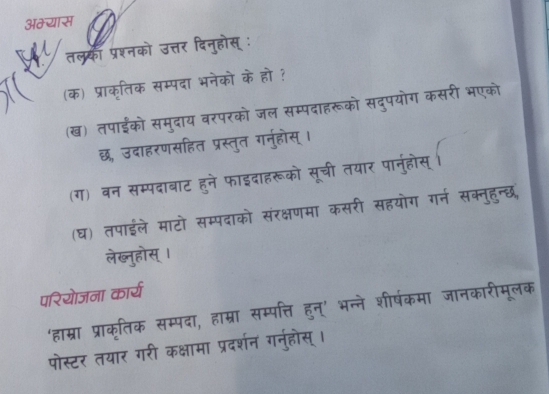 अभ्यास
तलका प्रश्नको उत्तर दिनुहोस् :
(क) प्राकृतिक सम्पदा भनेको के हो ?
(ख) तपाईंको समुदाय वरपरको जल सम्पदाहरूको सदुपयोग कसरी भएको
छ, उदाहरणसहित प्रस्तुत गर्नुहोस् ।
(ग) वन सम्पदाबाट हुने फाइदाहरूको सूची तयार पार्नुहोस् ।
(घ) तपाईंले माटो सम्पदाको संरक्षणमा कसरी सहयोग गर्न सक्नुहुन्छ,
लेख्नुहोस् ।
परियोजना कार्य
'हाम्रा प्राकृतिक सम्पदा, हाम्रा सम्पत्ति हुन्' भन्ने शीर्षकमा जानकारीमूलक
पोस्टर तयार गरी कक्षामा प्रदर्शन गर्नुहोस् ।